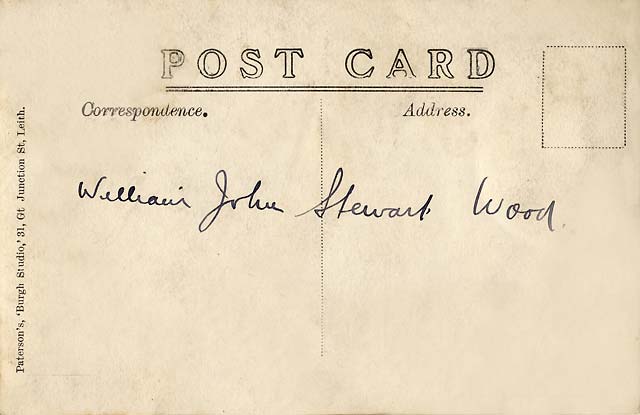 POST CARD
Correspondence.
Address.
William John Stewart Wood.
Paterson's, 'Burgh Studio,' 31, Gt Junction St, Leith.